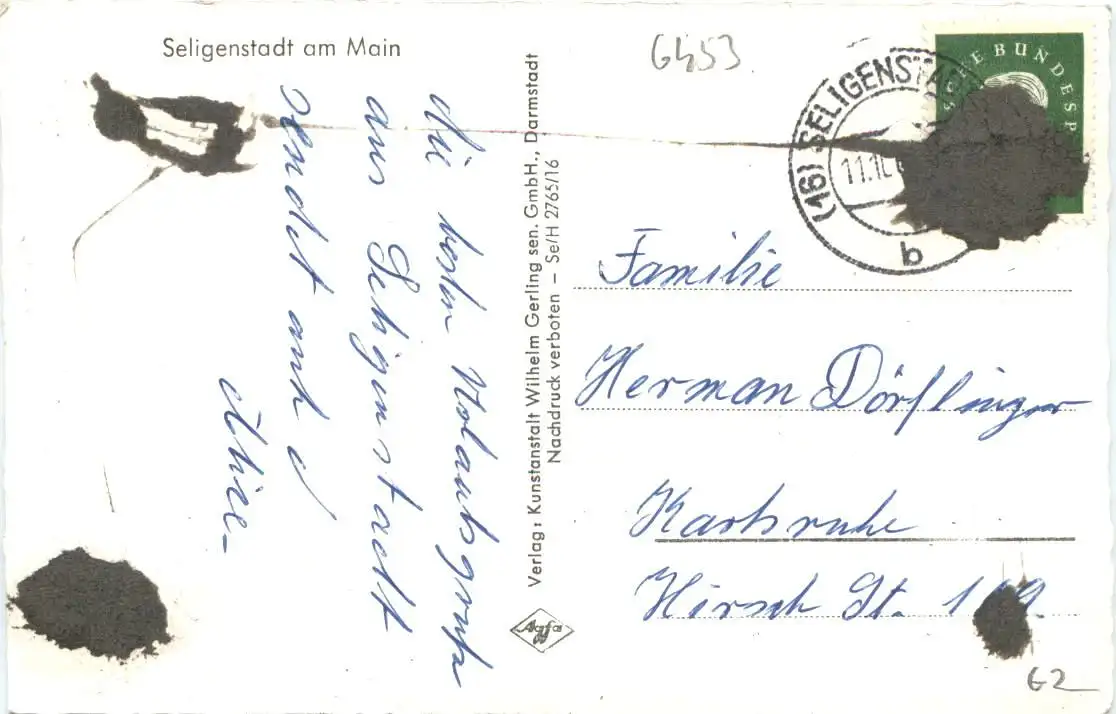 Seligenstadt am Main
6453
SCHE BUNDESP
(16) SELIGENSTADT
11.10
b
die besten Uolaubsgrüße
aus Seligenstadt
sendet auch
Verlag: Kunstanstalt Wilhelm Gerling sen. GmbH., Darmstadt
Nachdruck verboten – Se/H 2765/16
Agfa
Familie
Herman Dörflinger
Karlsruhe
Hirsch St.
62